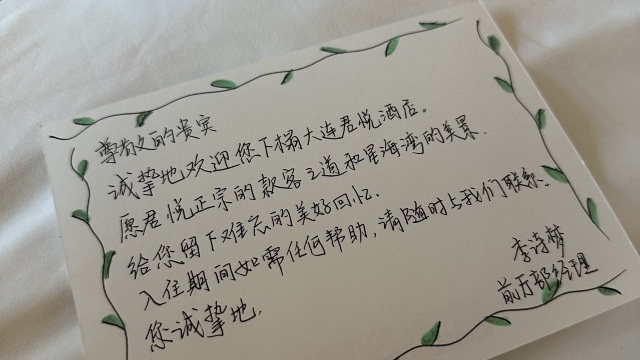 尊首之的贵宾
诚挚地欢迎您下榻大连君悦酒店。
愿君悦正宗的款客之道和星海湾的美景.
给您留下难忘的美好回忆.
入住期间如需任何帮助,请随时与我们联系.
您诚挚地.
李诗梦
前厅部经理